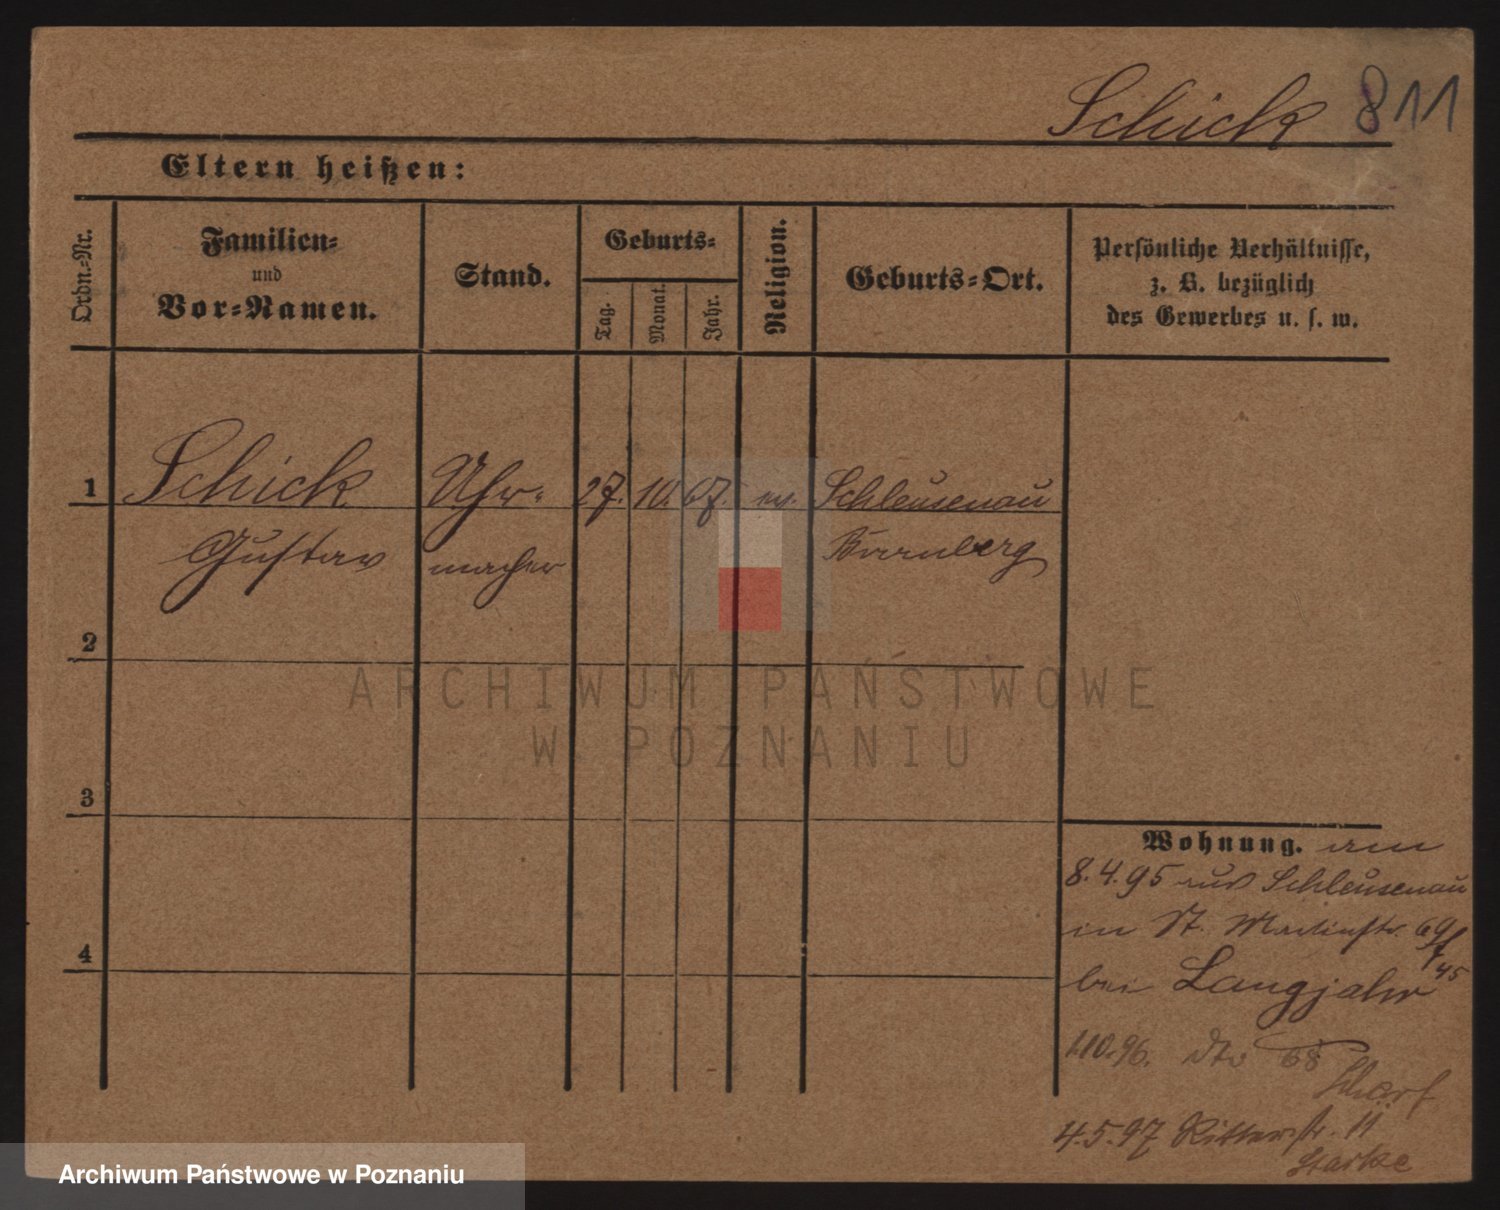 Schick 811
Eltern heißen:
Ordn.-Nr.
Familien-
und
Vor-Namen.
Stand.
Geburts-
Tag.
Monat.
Jahr.
Religion.
Geburts-Ort.
Persönliche Verhältnisse,
z. B. bezüglich
des Gewerbes u. s. w.
1 Schick Uhr- 27. 10. 67. ev. Schleusenau
Gustav macher Bromberg
2
3
4
ARCHIWUM PAŃSTWOWE
W POZNANIU
Wohnung. am
8.4.95 aus Schleusenau
in St. Martinstr. 69
45
bei Langjahr
1.10.96. dto 68
Scharf
4.5.97 Ritterstr. 11
Starke
Archiwum Państwowe w Poznaniu